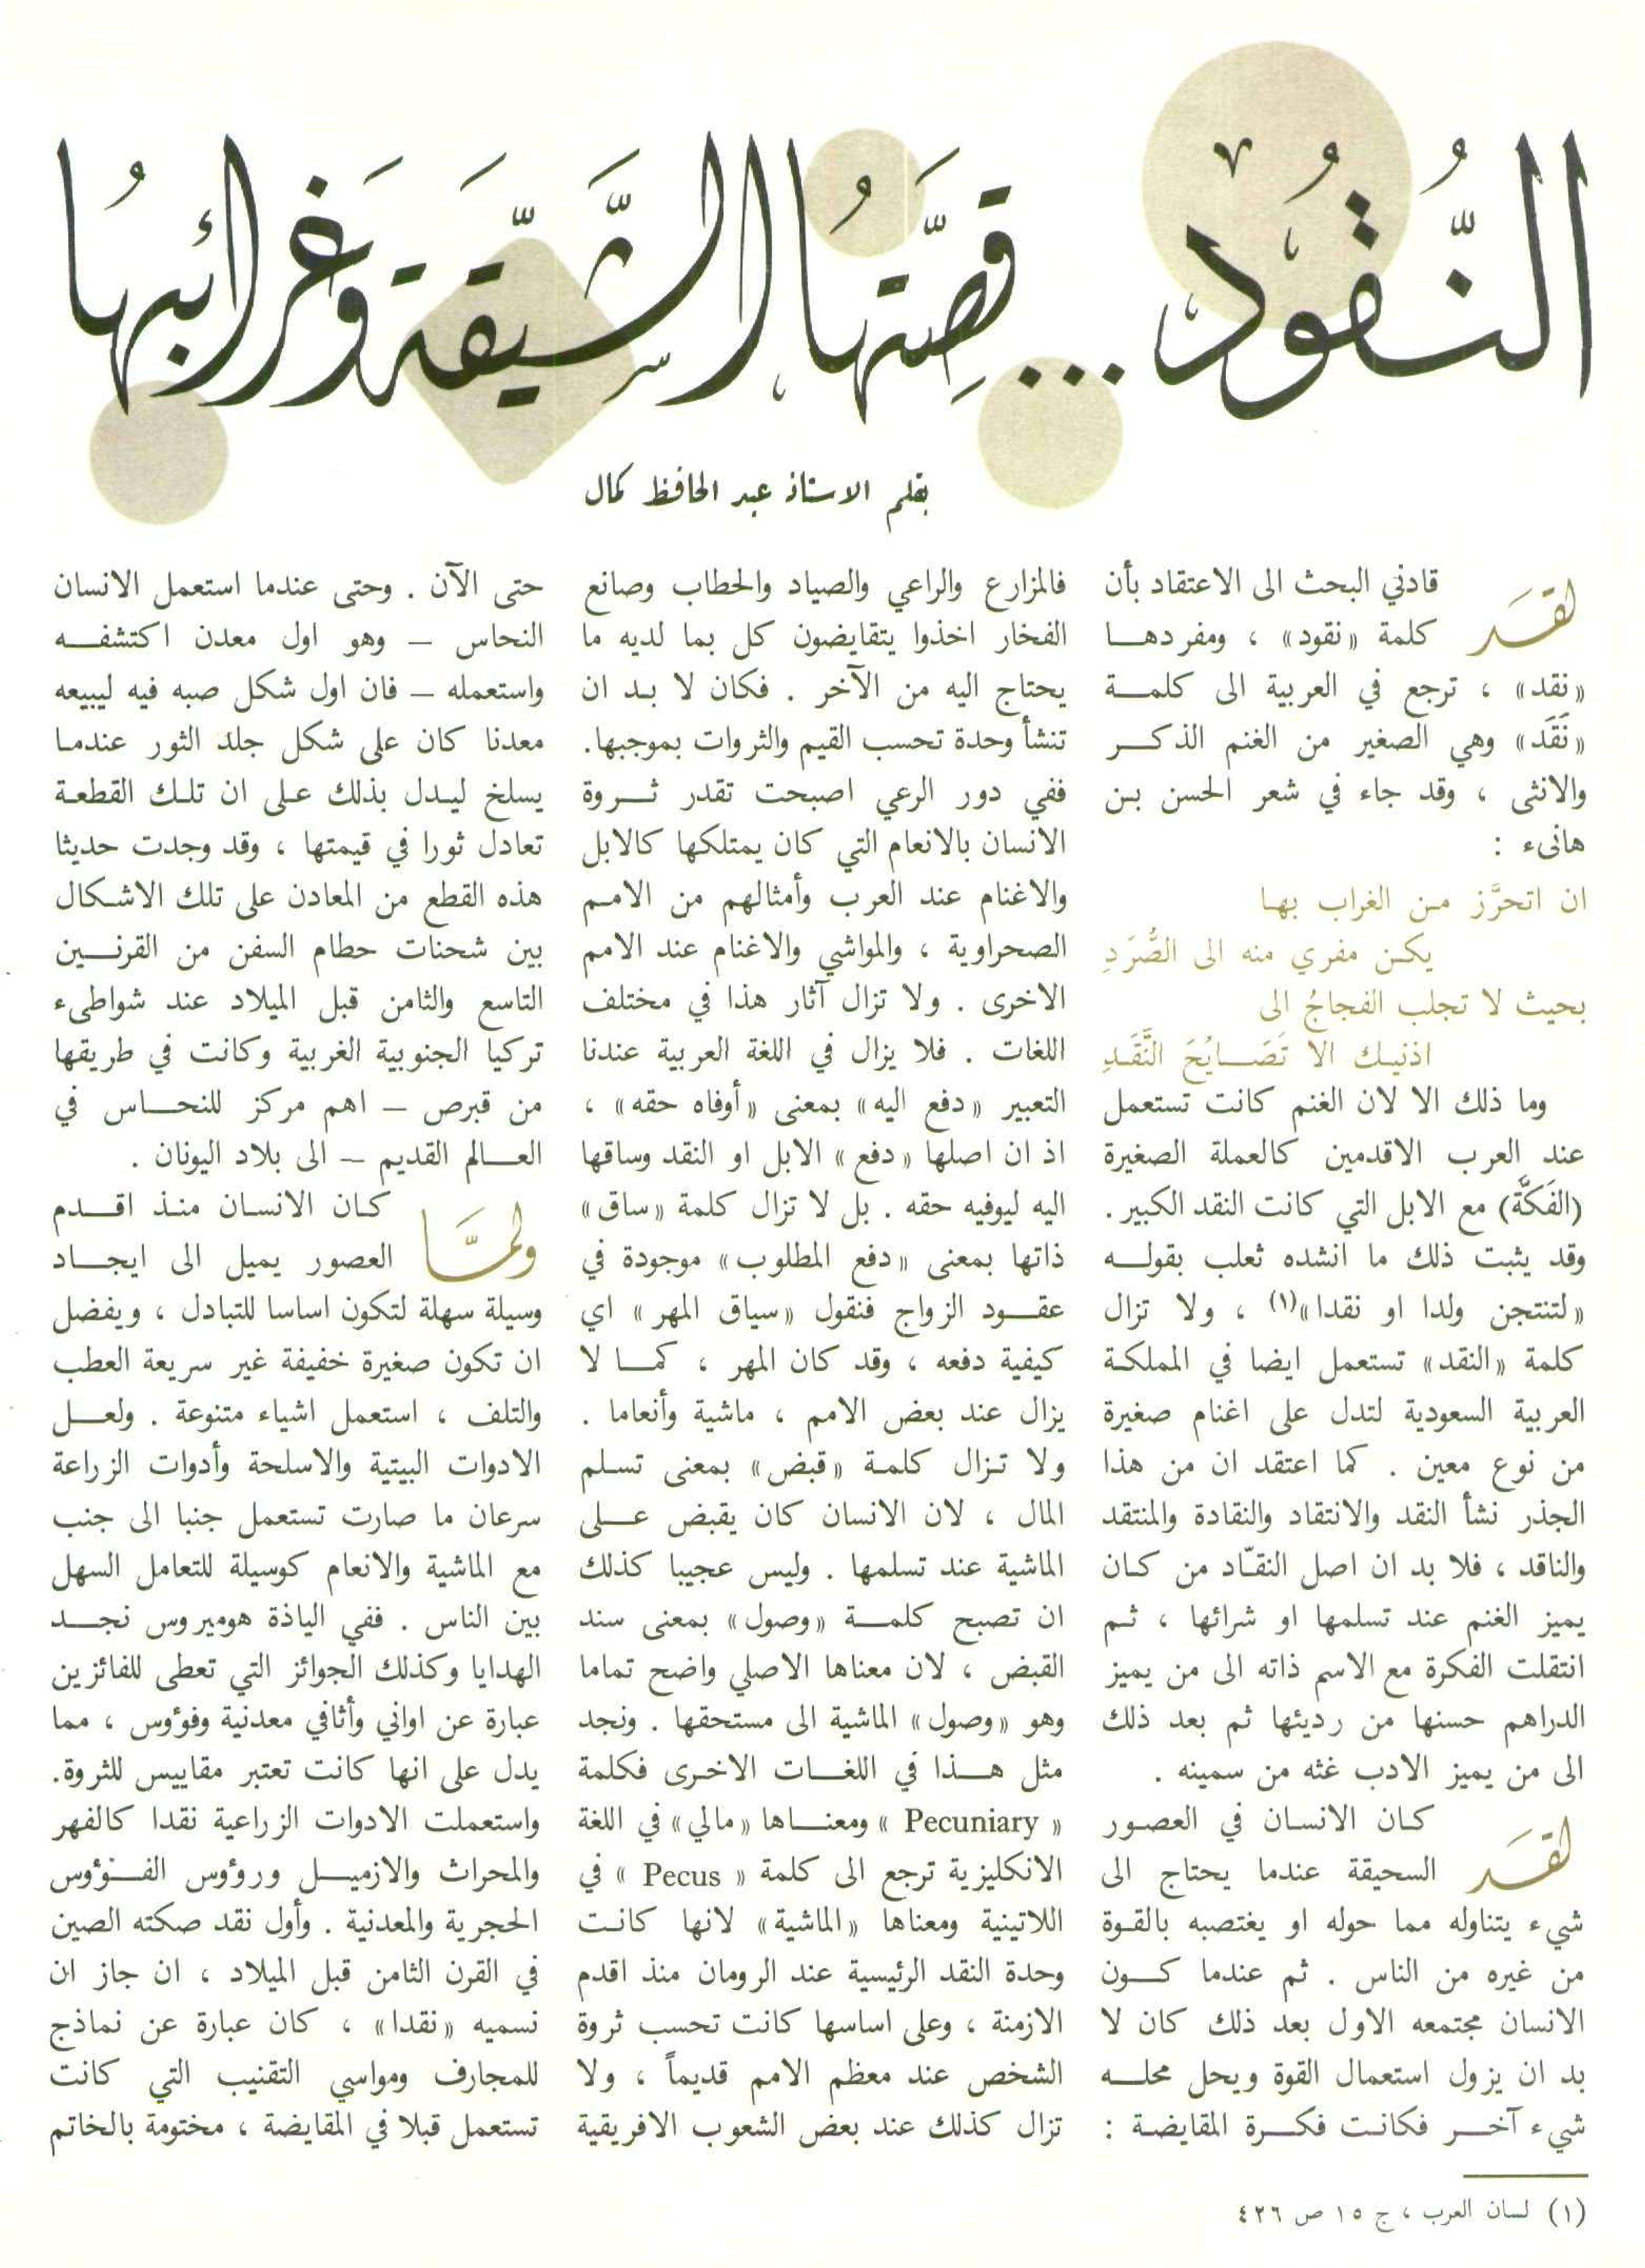 النُّقُود ... قِصَّتُهَا الشَّيِّقَة وَغَرَائِبُهَا
بقلم الاستاذ عبد الحافظ كمال
لقَد قادني البحث الى الاعتقاد بأن
كلمة «نقود» ، ومفردهـا
«نقد» ، ترجع في العربية الى كلمـة
«نَقَد» وهي الصغير من الغنم الذكـر
والانثى ، وقد جاء في شعر الحسن بن
هانىء :
ان اتحرَّز من الغراب بها
يكن مفري منه الى الصُّرَدِ
بحيث لا تجلب الفجاجُ الى
اذنيك الا تَصَـايُحَ النَّقَدِ
وما ذلك الا لان الغنم كانت تستعمل
عند العرب الاقدمين كالعملة الصغيرة
(الفَكَّة) مع الابل التي كانت النقد الكبير .
وقد يثبت ذلك ما انشده ثعلب بقولـه
«لتنتجن ولدا او نقدا»(١) ، ولا تزال
كلمة «النقد» تستعمل ايضا في المملكة
العربية السعودية لتدل على اغنام صغيرة
من نوع معين . كما اعتقد ان من هذا
الجذر نشأ النقد والانتقاد والنقادة والمنتقد
والناقد ، فلا بد ان اصل النقّاد من كـان
يميز الغنم عند تسلمها او شرائها ، ثـم
انتقلت الفكرة مع الاسم ذاته الى من يميز
الدراهم حسنها من رديئها ثم بعد ذلك
الى من يميز الادب غثه من سمينه .
لقَد كـان الانسـان في العصـور
السحيقة عندما يحتاج الى
شيء يتناوله مما حوله او يغتصبه بالقـوة
من غيره من الناس . ثم عندما كـون
الانسان مجتمعه الاول بعد ذلك كان لا
بد ان يزول استعمال القوة ويحل محلـه
شيء آخـر فكانـت فكـرة المقايضـة :
فالمزارع والراعي والصياد والحطاب وصانع
الفخار اخذوا يتقايضون كل بما لديه ما
يحتاج اليه من الآخر . فكان لا بـد ان
تنشأ وحدة تحسب القيم والثروات بموجبها.
ففي دور الرعي اصبحت تقدر ثـروة
الانسان بالانعام التي كان يمتلكها كالابل
والاغنام عند العرب وأمثالهم من الامـم
الصحراوية ، والمواشي والاغنام عند الامم
الاخرى . ولا تزال آثار هذا في مختلف
اللغات . فلا يزال في اللغة العربية عندنا
التعبير «دفع اليه» بمعنى «أوفاه حقه» ،
اذ ان اصلها «دفع» الابل او النقد وساقها
اليه ليوفيه حقه . بل لا تزال كلمة «ساق»
ذاتها بمعنى «دفع المطلوب» موجودة في
عقـود الزواج فنقول «سياق المهر» اي
كيفية دفعه ، وقد كان المهر ، كمـا لا
يزال عند بعض الامم ، ماشية وأنعاما .
ولا تـزال كلمـة «قبض» بمعنى تسـلم
المال ، لان الانسان كان يقبض عـلى
الماشية عند تسلمها . وليس عجيبا كذلك
ان تصبح كلمـة «وصول» بمعنى سند
القبض ، لان معناها الاصلي واضح تماما
وهو «وصول» الماشية الى مستحقها . ونجد
مثل هـذا في اللغـات الاخرى فكلمة
« Pecuniary » ومعنـاها «مالي» في اللغة
الانكليزية ترجع الى كلمة « Pecus » في
اللاتينية ومعناها «الماشية» لانها كانـت
وحدة النقد الرئيسية عند الرومان منذ اقدم
الازمنة ، وعلى اساسها كانت تحسب ثروة
الشخص عند معظم الامم قديماً ، ولا
تزال كذلك عند بعض الشعوب الافريقية
حتى الآن . وحتى عندما استعمل الانسان
النحاس – وهو اول معدن اكتشفـه
واستعمله – فان اول شكل صبه فيه ليبيعه
معدنا كان على شكل جلد الثور عندمـا
يسلخ ليـدل بذلك عـلى ان تلـك القطعـة
تعادل ثورا في قيمتها ، وقد وجدت حديثا
هذه القطع من المعادن على تلك الاشـكال
بين شحنات حطام السفن من القرنـين
التاسع والثامن قبل الميلاد عند شواطىء
تركيا الجنوبية الغربية وكانت في طريقها
من قبرص – اهم مركز للنحـاس في
العـالم القديم – الى بلاد اليونان .
ولمَّا كـان الانسـان منـذ اقـدم
العصور يميل الى ايجـاد
وسيلة سهلة لتكون اساسا للتبادل ، ويفضل
ان تكون صغيرة خفيفة غير سريعة العطب
والتلف ، استعمل اشياء متنوعة . ولعـل
الادوات البيتية والاسلحة وأدوات الزراعة
سرعان ما صارت تستعمل جنبا الى جنب
مع الماشية والانعام كوسيلة للتعامل السهل
بين الناس . ففي الياذة هوميروس نجـد
الهدايا وكذلك الجوائز التي تعطى للفائزين
عبارة عن اواني وأثافي معدنية وفؤوس ، مما
يدل على انها كانت تعتبر مقاييس للثروة.
واستعملت الادوات الزراعية نقدا كالفهر
والمحراث والازميـل ورؤوس الفـؤوس
الحجرية والمعدنية . وأول نقد صكته الصين
في القرن الثامن قبل الميلاد ، ان جاز ان
نسميه «نقدا» ، كان عبارة عن نماذج
للمجارف ومواسي التقنيب التي كانت
تستعمل قبلا في المقايضة ، مختومة بالخاتم
(١) لسان العرب ، ج ١٥ ص ٤٢٦